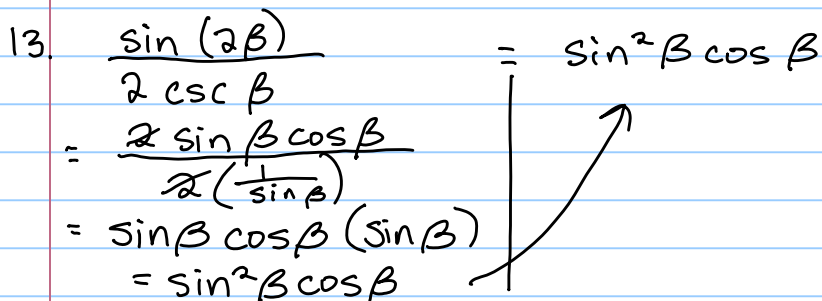 13. sin (2β) / 2 csc β = sin²β cos β
= 2 sin β cos β / 2(1/sin β)
= sinβ cosβ (sin β)
= sin²β cosβ